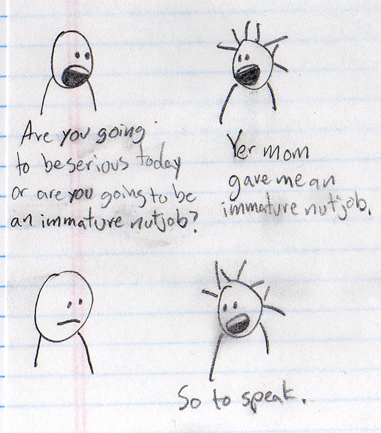 Are you going
to be serious today
or are you going to be
an immature nutjob?
Yer mom
gave me an
immature nutjob.
So to speak.